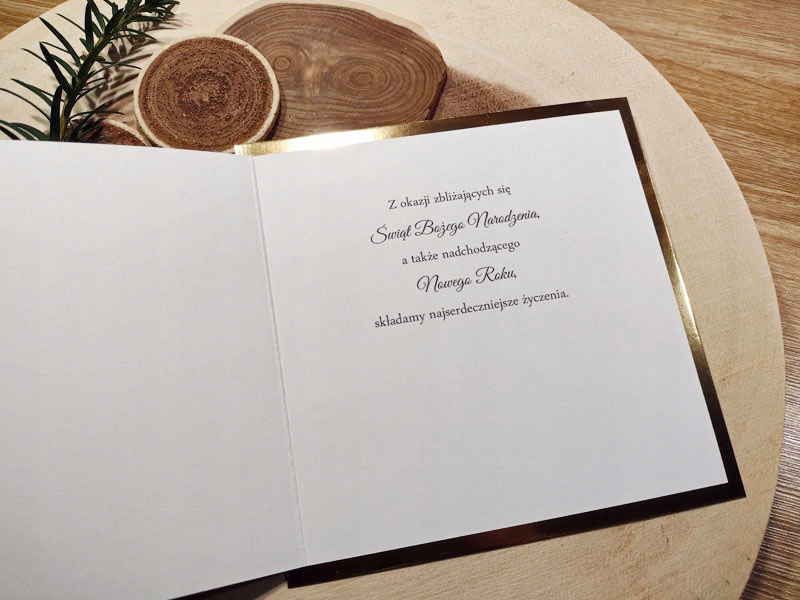 Z okazji zbliżających się
Świąt Bożego Narodzenia,
a także nadchodzącego
Nowego Roku,
składamy najserdeczniejsze życzenia.